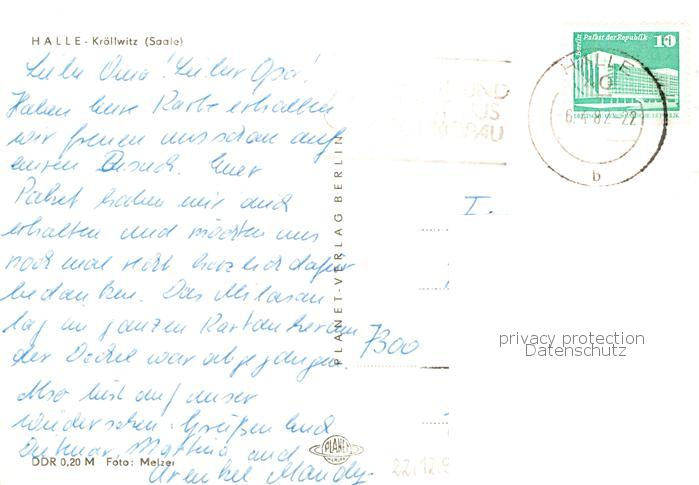 HALLE - Kröllwitz (Saale)
Liebe Oma! Lieber Opa!
Haben eure Karte erhalten
wir freuen uns schon auf
euren Besuch. Euer
Paket haben wir auch
erhalten und möchten uns
noch mal recht herzlich dafür
bedanken. Das
lag im ganzen Karton herum
der Deckel war abgegangen.
Also bis auf unser
wiedersehen. Grüßen Euch
Dietmar, Martina und
Urenkel Mandy
DDR 0,20 M Foto: Melzer
PLANET-VERLAG BERLIN
PLANET
Berlin Palast der Republik 10
HALLE
82-22
b
I..
7300
privacy protection
Datenschutz
22.12.9